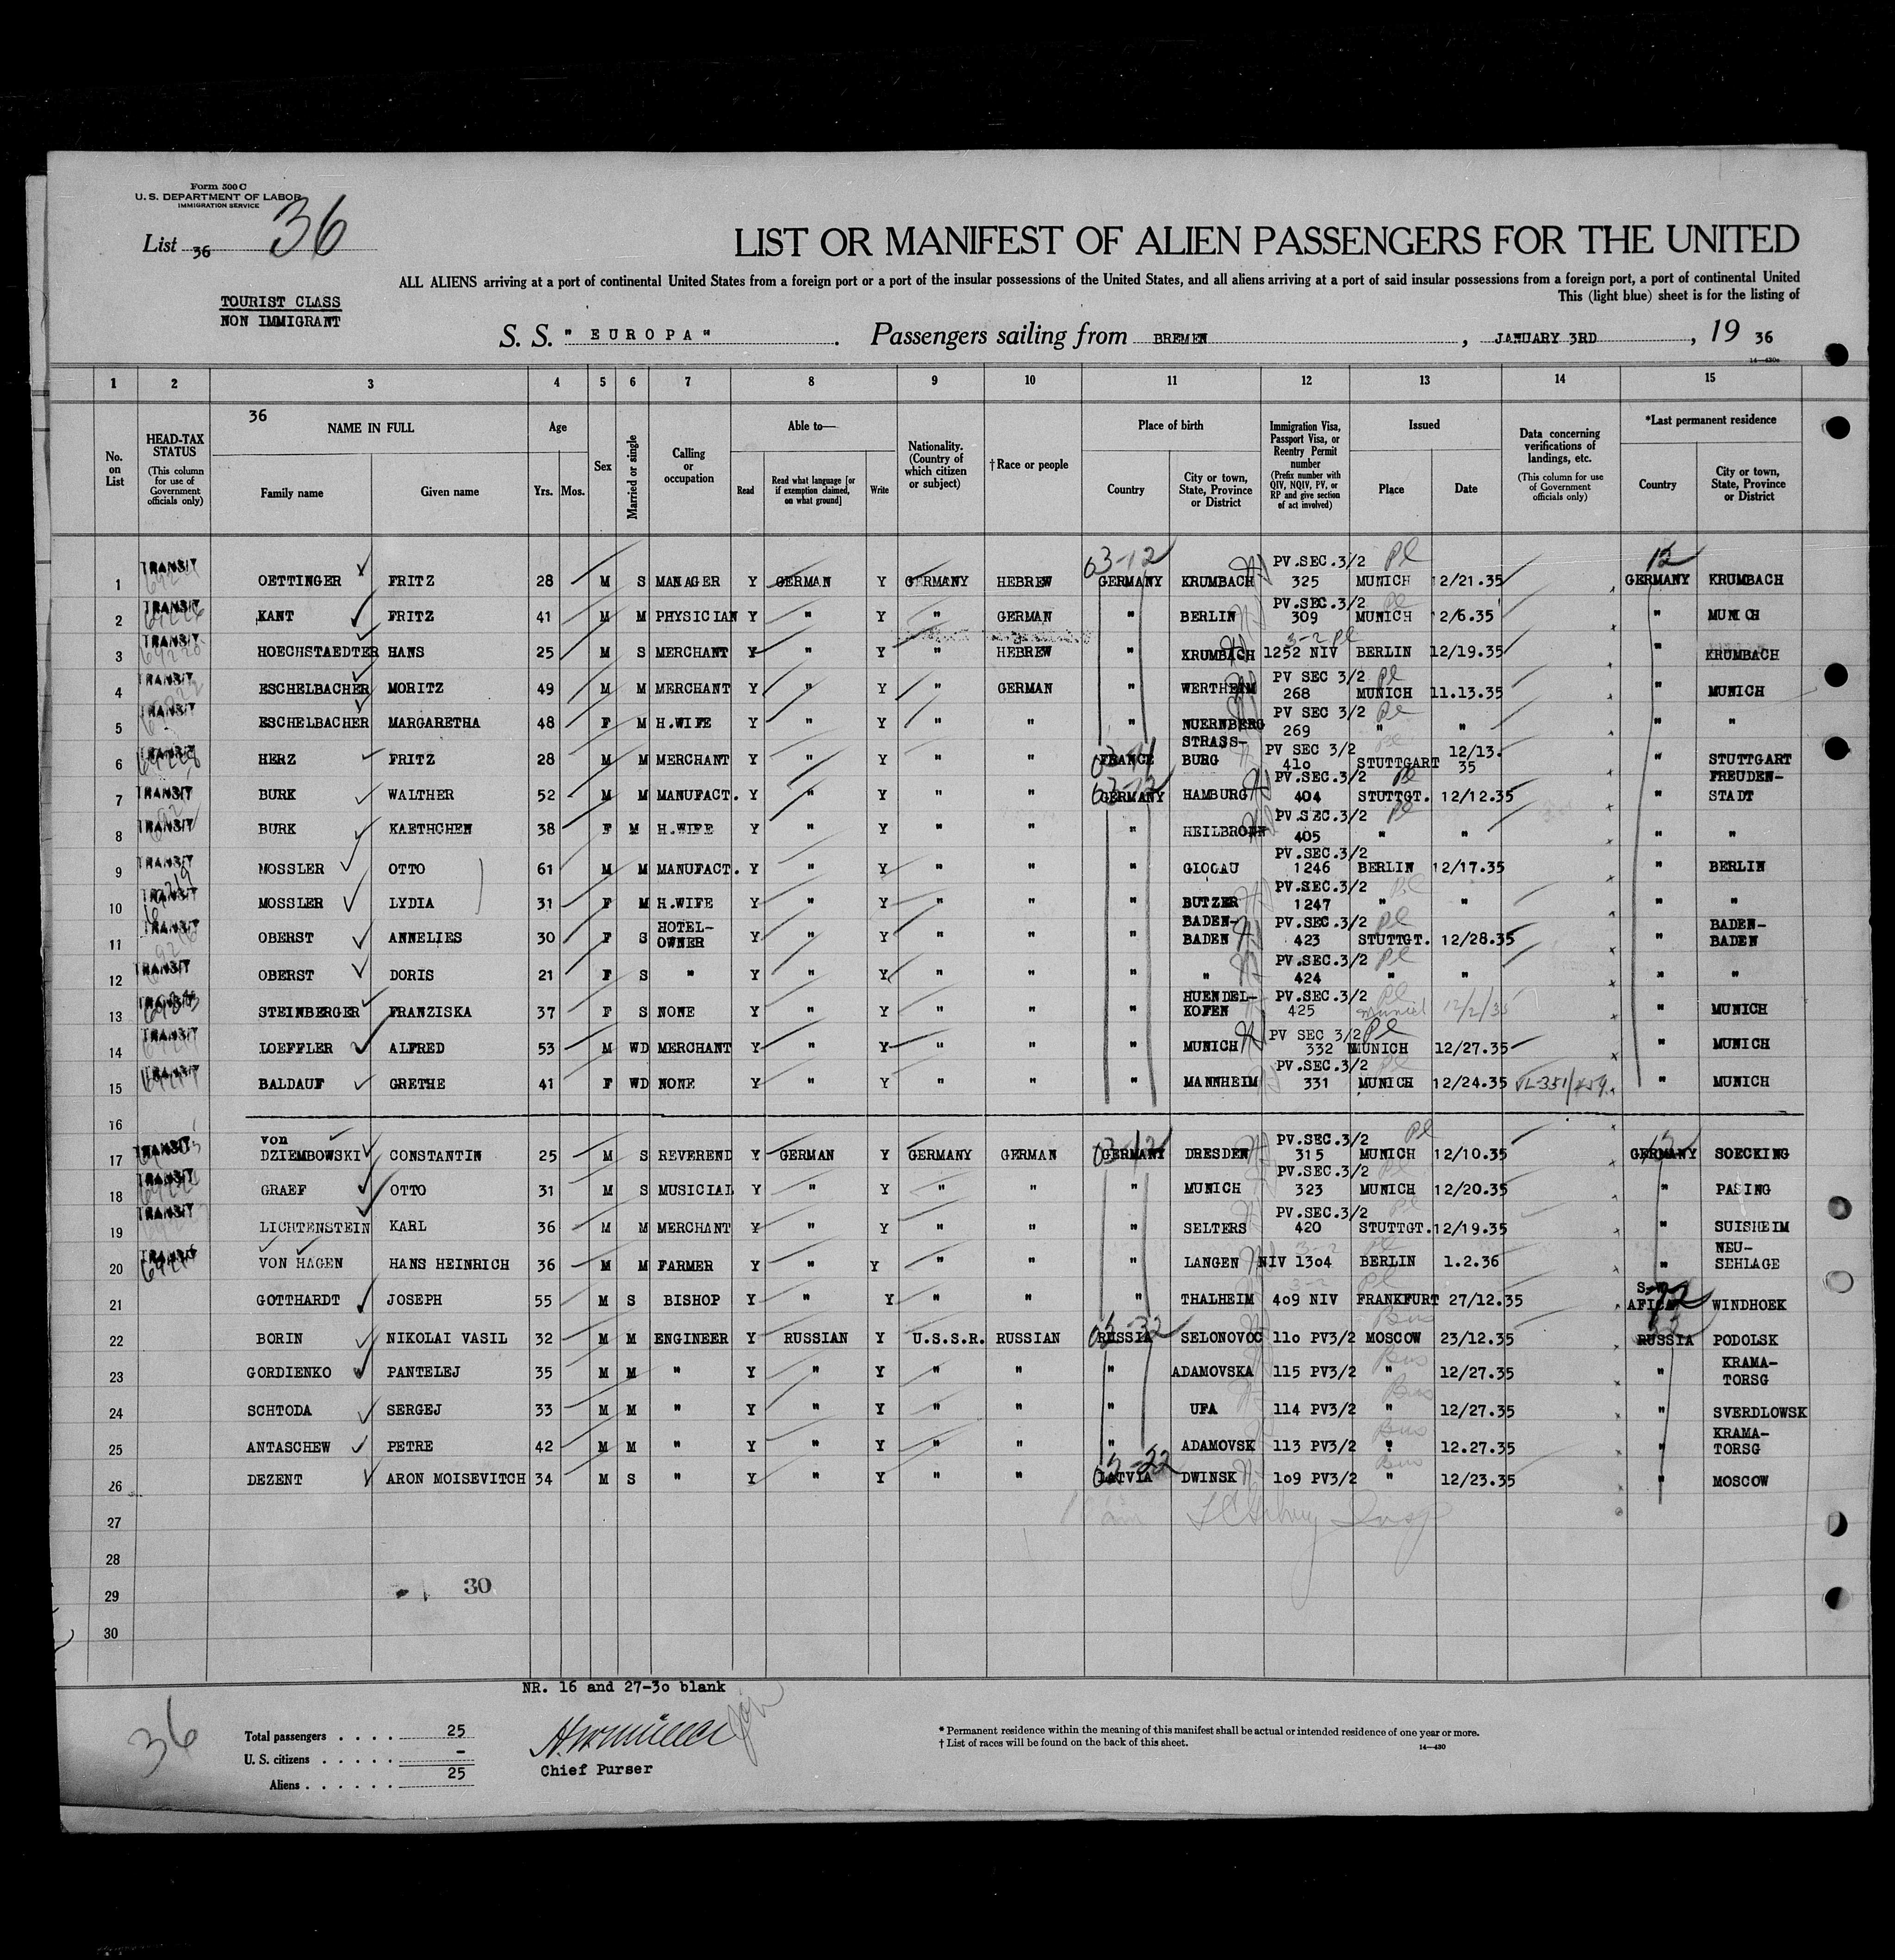 Form 500 C
U. S. DEPARTMENT OF LABOR
IMMIGRATION SERVICE
List 36 36
LIST OR MANIFEST OF ALIEN PASSENGERS FOR THE UNITED
ALL ALIENS arriving at a port of continental United States from a foreign port or a port of the insular possessions of the United States, and all aliens arriving at a port of said insular possessions from a foreign port, a port of continental United
This (light blue) sheet is for the listing of
TOURIST CLASS
NON IMMIGRANT
S. S. "EUROPA". Passengers sailing from BREMEN, JANUARY 3RD, 19 36
14—430c
1 2 3 4 5 6 7 8 9 10 11 12 13 14 15
No. on List
HEAD-TAX STATUS (This column for use of Government officials only)
36
NAME IN FULL Family name Given name
Age Yrs. Mos.
Sex
Married or single
Calling or occupation
Able to— Read Read what language [or if exemption claimed, on what ground] Write
Nationality. (Country of which citizen or subject)
†Race or people
Place of birth Country City or town, State, Province or District
Immigration Visa, Passport Visa, or Reentry Permit number (Prefix number with QIV, NQIV, PV, or RP and give section of act involved)
Issued Place Date
Data concerning verifications of landings, etc. (This column for use of Government officials only)
*Last permanent residence Country City or town, State, Province or District
03-12 12
1 TRANSIT OETTINGER FRITZ 28 M S MANAGER Y GERMAN Y GERMANY HEBREW GERMANY KRUMBACH PV.SEC.3/2 325 MUNICH 12/21.35 GERMANY KRUMBACH
2 TRANSIT KANT FRITZ 41 M M PHYSICIAN Y " Y " GERMAN " BERLIN PV.SEC.3/2 309 MUNICH 12/6.35 " MUNICH
3 TRANSIT HOECHSTAEDTER HANS 25 M S MERCHANT Y " Y " HEBREW " KRUMBACH 3-2 Pl 1252 NIV BERLIN 12/19.35 " KRUMBACH
4 TRANSIT ESCHELBACHER MORITZ 49 M M MERCHANT Y " Y " GERMAN " WERTHEIM PV SEC 3/2 268 MUNICH 11.13.35 " MUNICH
5 TRANSIT ESCHELBACHER MARGARETHA 48 F M H.WIFE Y " Y " " " NUERNBERG PV SEC 3/2 269 " " " "
6 TRANSIT HERZ FRITZ 28 M M MERCHANT Y " Y " " FRANCE STRASS-BURG PV SEC 3/2 41o STUTTGART 12/13.35 " STUTTGART
7 TRANSIT BURK WALTHER 52 M M MANUFACT. Y " Y " " GERMANY HAMBURG PV.SEC.3/2 404 STUTTGT. 12/12.35 " FREUDEN-STADT
8 TRANSIT BURK KAETHCHEN 38 F M H.WIFE Y " Y " " " HEILBRONN PV.SEC.3/2 405 " " " "
9 TRANSIT MOSSLER OTTO 61 M M MANUFACT. Y " Y " " " GLOGAU PV.SEC.3/2 1246 BERLIN 12/17.35 " BERLIN
10 TRANSIT MOSSLER LYDIA 31 F M H.WIFE Y " Y " " " BUTZER PV.SEC.3/2 1247 " " " "
11 TRANSIT OBERST ANNELIES 30 F S HOTEL-OWNER Y " Y " " " BADEN-BADEN PV.SEC.3/2 423 STUTTGT. 12/28.35 " BADEN-BADEN
12 TRANSIT OBERST DORIS 21 F S " Y " Y " " " " PV.SEC.3/2 424 " " " "
13 TRANSIT STEINBERGER FRANZISKA 37 F S NONE Y " Y " " " HUENDEL-KOFEN PV.SEC.3/2 425 Munich 12/2/35 " MUNICH
14 TRANSIT LOEFFLER ALFRED 53 M WD MERCHANT Y " Y " " " MUNICH PV SEC 3/2 332 MUNICH 12/27.35 " MUNICH
15 TRANSIT BALDAUF GRETHE 41 F WD NONE Y " Y " " " MANNHEIM PV.SEC.3/2 331 MUNICH 12/24.35 " MUNICH
16
17 TRANSIT von DZIEMBOWSKI CONSTANTIN 25 M S REVEREND Y GERMAN Y GERMANY GERMAN GERMANY DRESDEN PV.SEC.3/2 315 MUNICH 12/10.35 GERMANY SOECKING
18 TRANSIT GRAEF OTTO 31 M S MUSICIAL Y " Y " " " MUNICH PV.SEC.3/2 323 MUNICH 12/20.35 " PASING
19 TRANSIT LICHTENSTEIN KARL 36 M M MERCHANT Y " Y " " " SELTERS PV.SEC.3/2 420 STUTTGT. 12/19.35 " SUISHEIM
20 TRANSIT VON HAGEN HANS HEINRICH 36 M M FARMER Y " Y " " " LANGEN NIV 13o4 BERLIN 1.2.36 " NEU-SEHLAGE
21 GOTTHARDT JOSEPH 55 M S BISHOP Y " Y " " " THALHEIM 4o9 NIV FRANKFURT 27/12.35 AFICA WINDHOEK
22 BORIN NIKOLAI VASIL 32 M M ENGINEER Y RUSSIAN Y U.S.S.R. RUSSIAN RUSSIA SELONOVOC 11o PV3/2 MOSCOW 23/12.35 RUSSIA PODOLSK
23 GORDIENKO PANTELEJ 35 M M " Y " Y " " " ADAMOVSKA 115 PV3/2 " 12/27.35 " KRAMA-TORSG
24 SCHTODA SERGEJ 33 M M " Y " Y " " " UFA 114 PV3/2 " 12/27.35 " SVERDLOWSK
25 ANTASCHEW PETRE 42 M M " Y " Y " " " ADAMOVSK 113 PV3/2 " 12.27.35 " KRAMA-TORSG
26 DEZENT ARON MOISEVITCH 34 M S " Y " Y " " LATVIA DWINSK 1o9 PV3/2 " 12/23.35 " MOSCOW
27
28
29 30
30
NR. 16 and 27-3o blank
36
Total passengers . . . . 25
U. S. citizens . . . . . –
Aliens . . . . . . 25
Chief Purser
* Permanent residence within the meaning of this manifest shall be actual or intended residence of one year or more.
† List of races will be found on the back of this sheet.
14—430